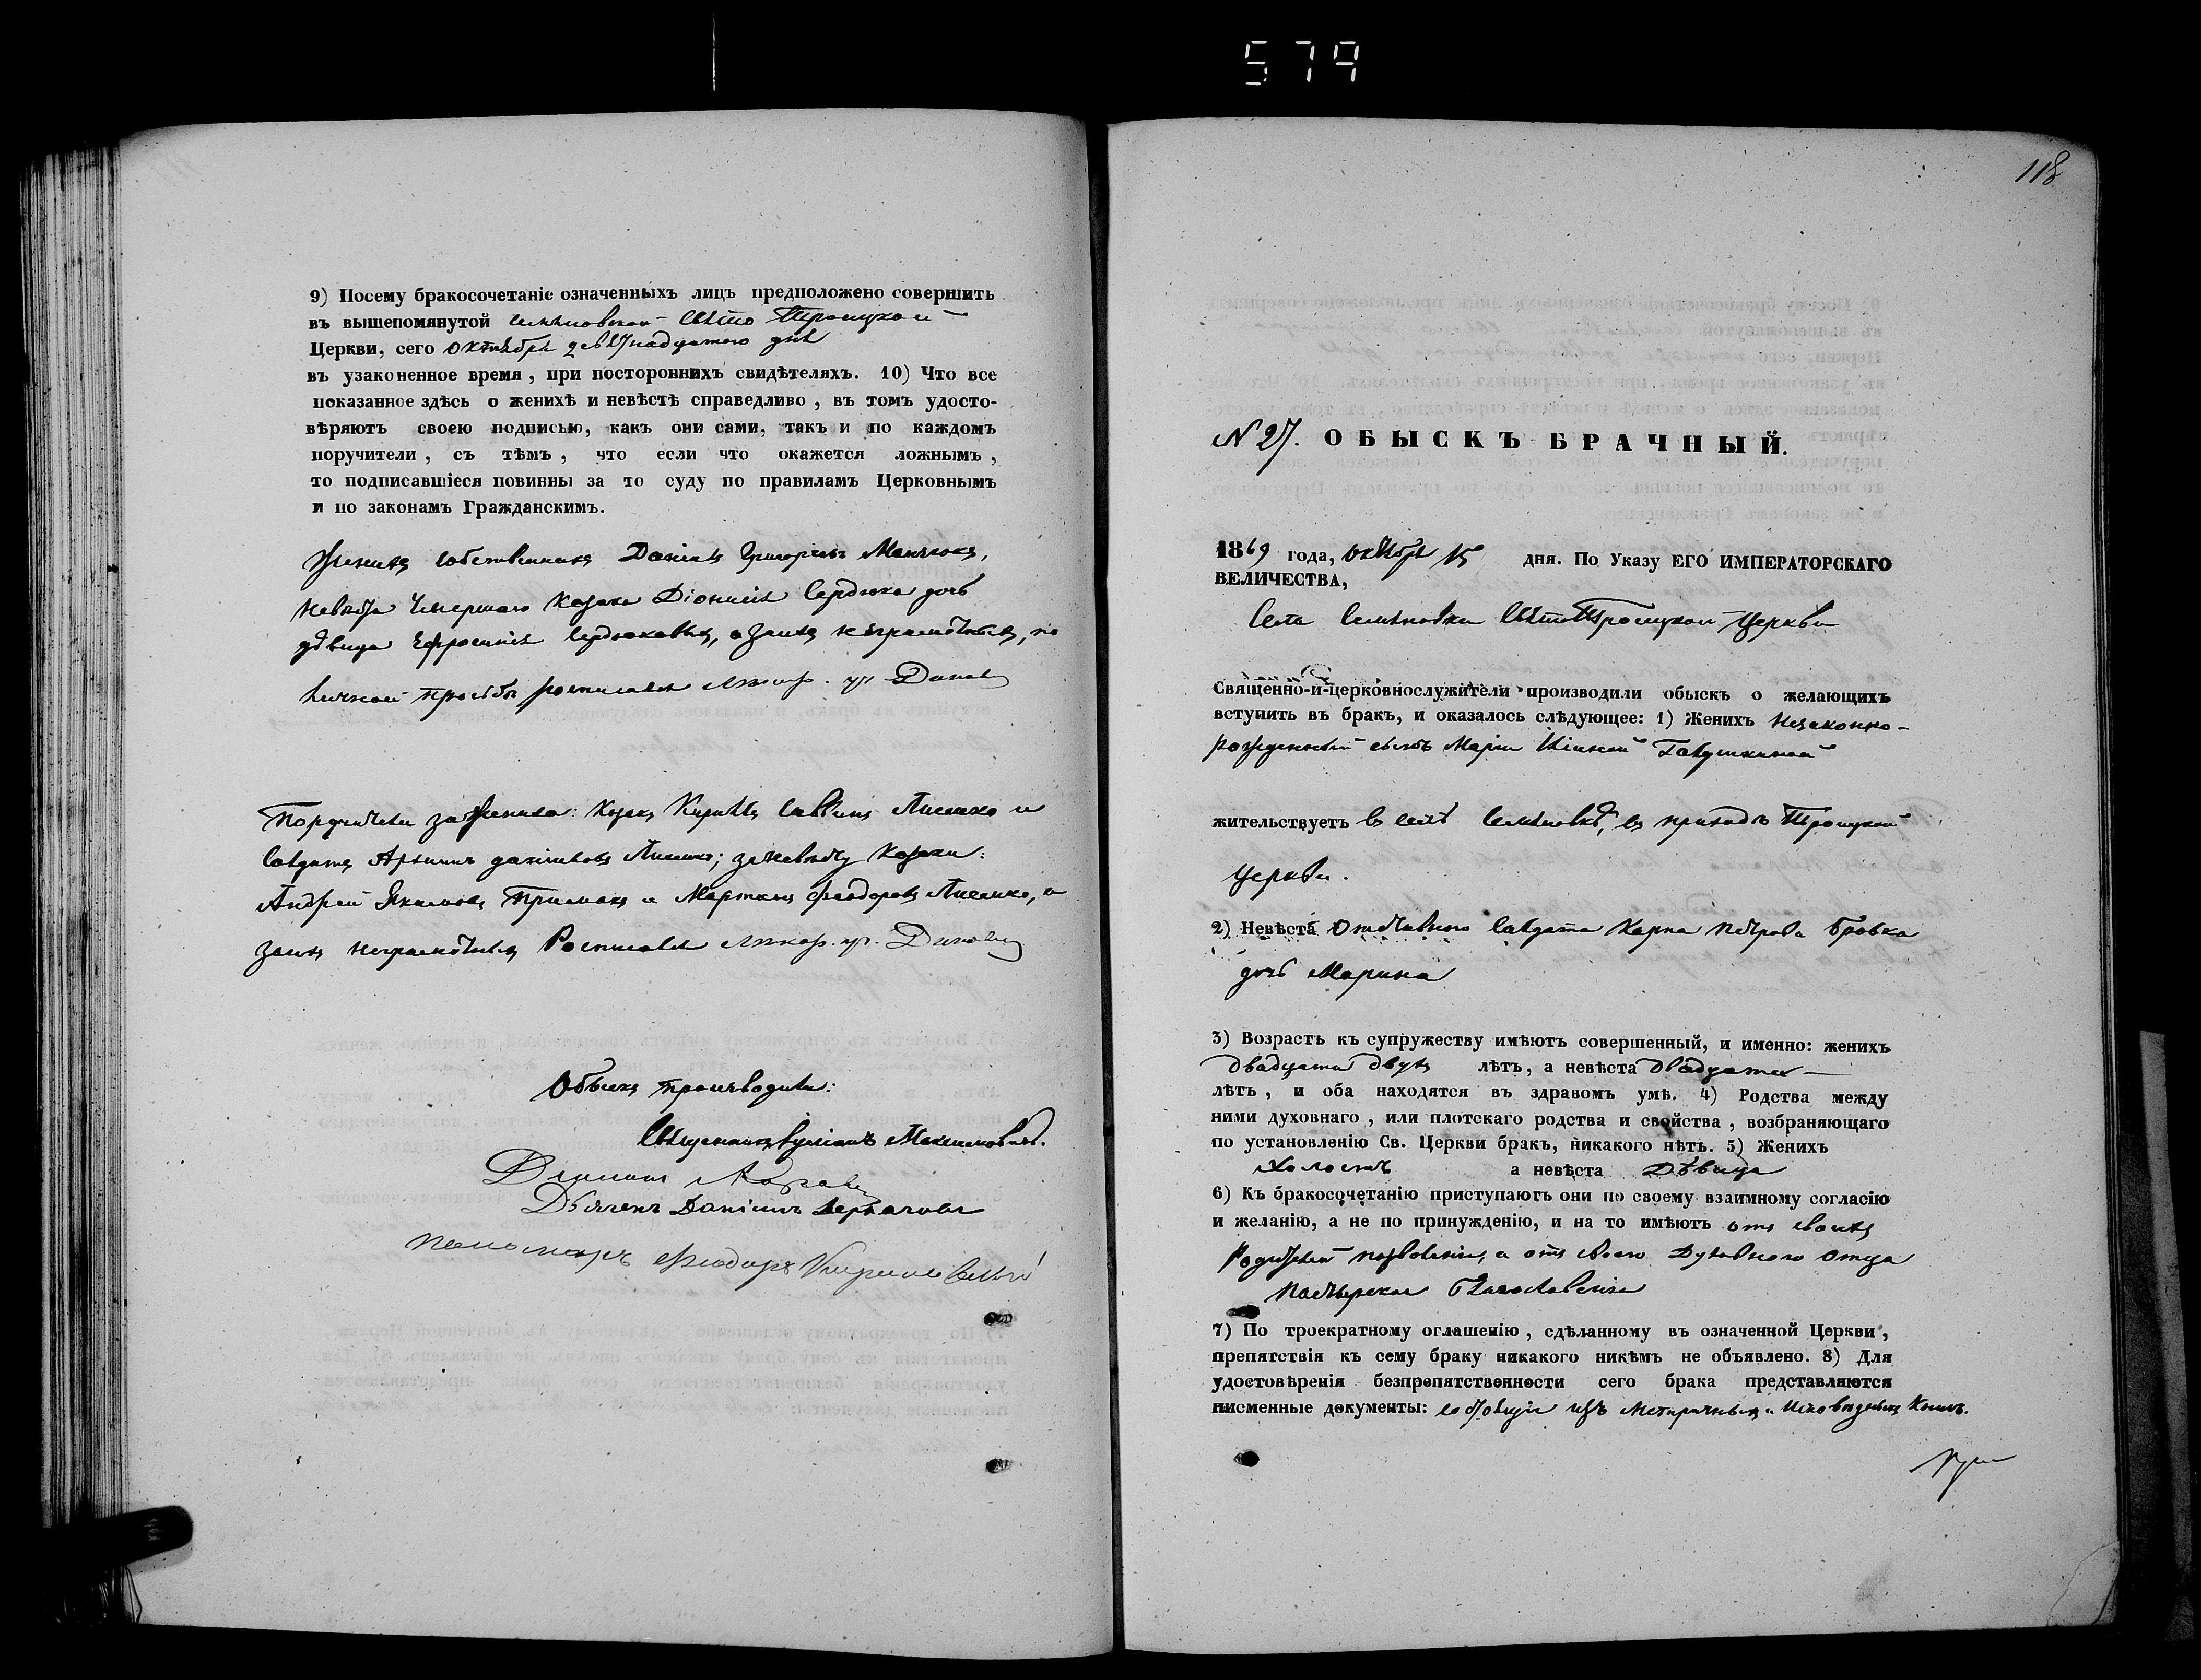 574
9) Посему бракосочетаніе означенныхъ лицъ предположено совершить
въ вышепомянутой Семеновской Свято Троицкой
Церкви, сего октября девятнадцатого дня
въ узаконенное время, при постороннихъ свидѣтеляхъ. 10) Что все
показанное здѣсь о женихѣ и невѣстѣ справедливо, въ томъ удосто-
вѣряютъ своею подписью, какъ они сами, такъ и по каждомъ
поручители, съ тѣмъ, что если что окажется ложнымъ,
то подписавшіеся повинны за то суду по правиламъ Церковнымъ
и по законамъ Гражданскимъ.
Женихъ собственникъ Даніилъ Григоріевъ
невѣста козака Діонисія Сердюка дочь
дѣвица Ефросинія Сердюкова, а за ихъ неграмотныхъ, по
личной просьбѣ росписался
Поручители за жениха: козакъ Кириллъ Саввинъ Лисенко и
солдатъ за невѣсту козаки:
Андрей Якимовъ Примакъ и Мартинъ Феодоровъ Лисенко, а
за ихъ неграмотныхъ Росписался
Обыскъ производили:
Священникъ Максимовичъ.
Діаконъ
Дьячекъ Даніилъ
Пономарь Феодоръ
118
N 27. ОБЫСКЪ БРАЧНЫЙ.
1869 года, октября 15 дня. По Указу ЕГО ИМПЕРАТОРСКАГО
ВЕЛИЧЕСТВА,
Села Семеновки Свято Троицкой Церкви
Священно-и-церковнослужители производили обыскъ о желающихъ
вступить въ бракъ, и оказалось слѣдующее: 1) Женихъ Незаконно-
рожденный сынъ Маріи
жительствуетъ въ селѣ Семеновкѣ, въ приходѣ Троицкой
Церкви.
2) Невѣста Отставного солдата Карпа Петрова Бровка
дочь Марина
3) Возрастъ къ супружеству имѣютъ совершенный, и именно: женихъ
двадцати двухъ лѣтъ, а невѣста двадцати
лѣтъ, и оба находятся въ здравомъ умѣ. 4) Родства между
ними духовнаго, или плотскаго родства и свойства, возбраняющаго
по установленію Св. Церкви бракъ, никакого нѣтъ. 5) Женихъ
холостъ а невѣста Дѣвица
6) Къ бракосочетанію приступаютъ они по своему взаимному согласію
и желанію, а не по принужденію, и на то имѣютъ отъ своихъ
Родителей позволеніе, а отъ своего Духовного отца
пастырское Благословеніе
7) По троекратному оглашенію, сдѣланному въ означенной Церкви,
препятствія къ сему браку никакого никѣмъ не объявлено. 8) Для
удостовѣренія безпрепятственности сего брака представляются
писменные документы: изъ Метричныхъ и Исповѣдныхъ Книгъ.